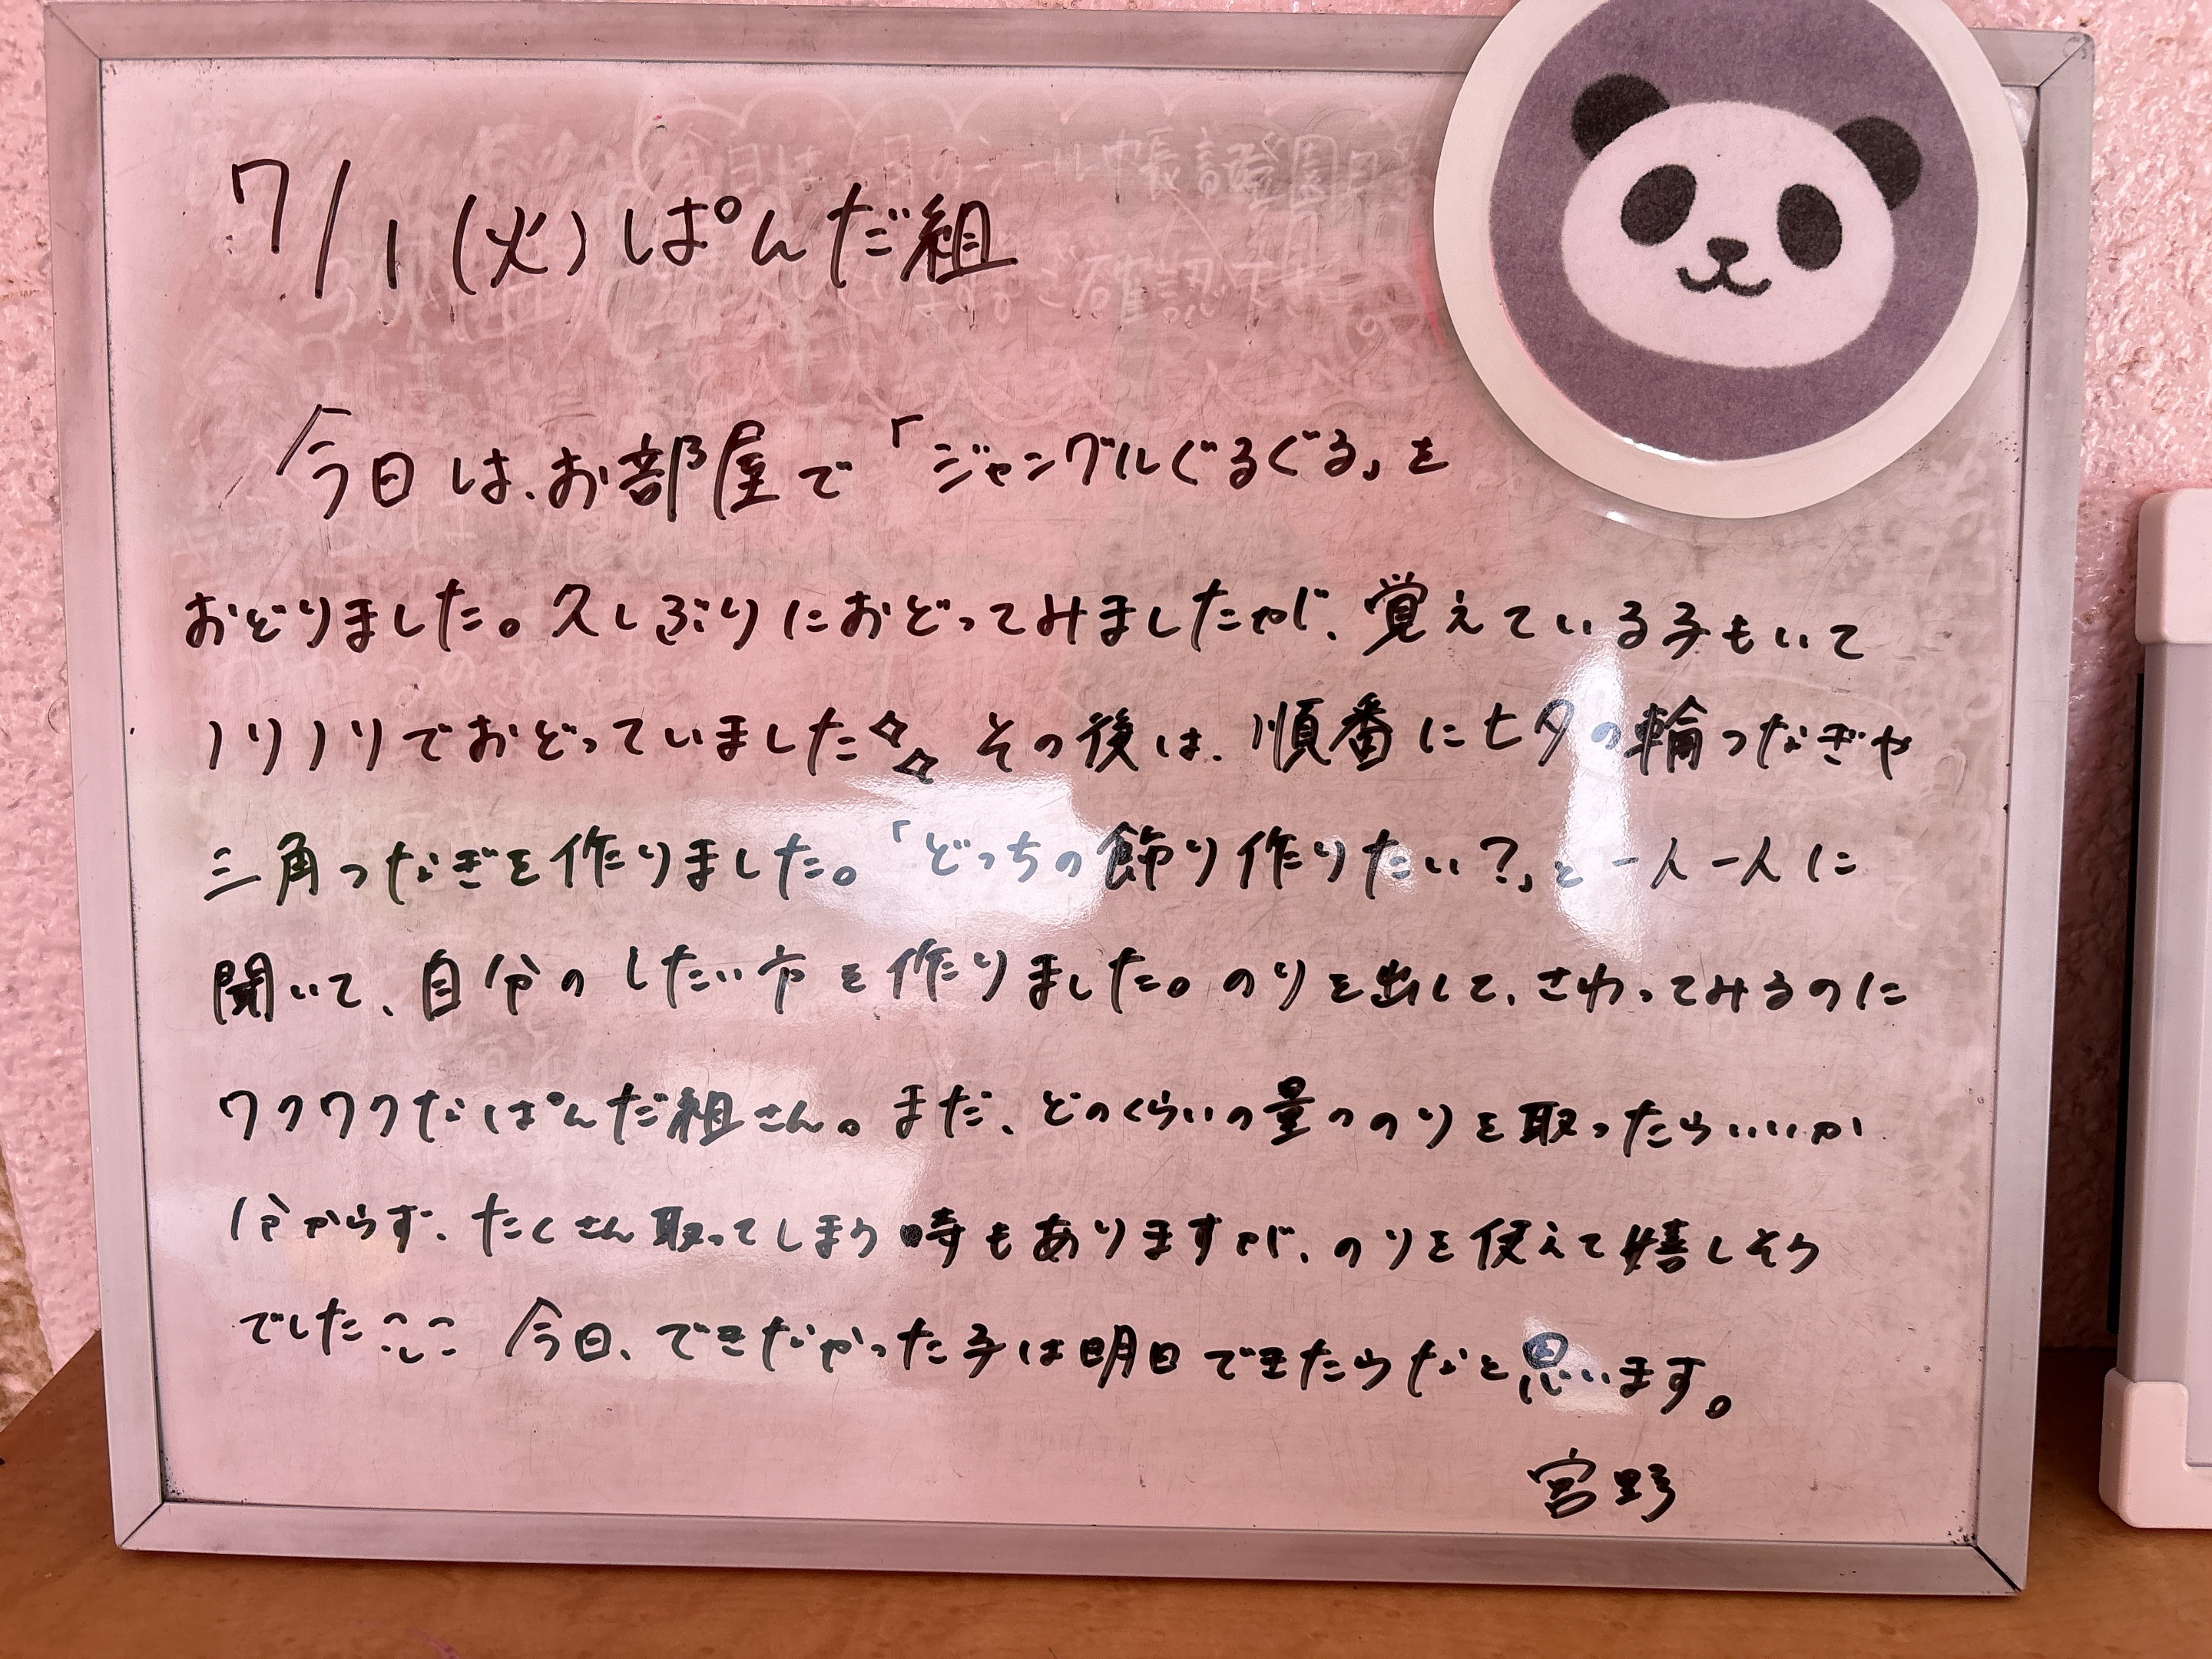 7/1(火)ぱんだ組
今日は、お部屋で「ジャングルぐるぐる」を
おどりました。久しぶりにおどってみましたが、覚えている子もいて
ノリノリでおどっていました✧✧ その後は、順番に七夕の輪つなぎや
三角つなぎを作りました。「どっちの飾り作りたい?」と一人一人に
聞いて、自分のしたい方を作りました。のりを出して、さわってみるのに
ワクワクなぱんだ組さん。まだ、どのくらいの量ののりを取ったらいいか
分からず、たくさん取ってしまう時もありますが、のりを使えて嬉しそう
でした 今日、できなかった子は明日できたらなと思います。
宮野